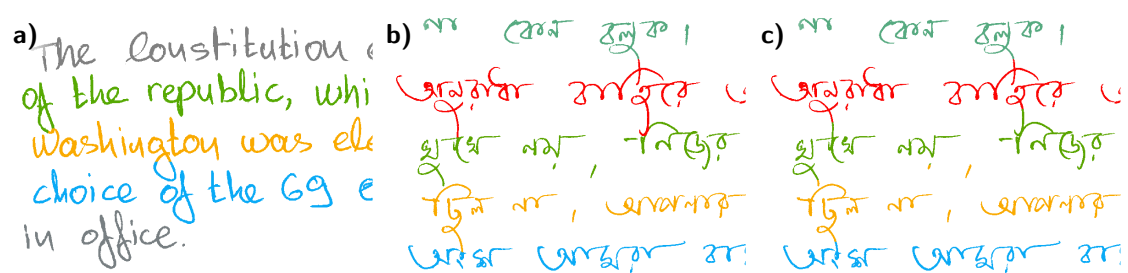 a)
The Constitution
of the republic, whi
Washington was ele
choice of the 69 e
in office.
b)
না কোন বলুক।
অনুরাধা বাহিরে
মুখে নয়, নিজের
ছিল না, আপনার
অংশ আমরা
c)
না কোন বলুক।
অনুরাধা বাহিরে
মুখে নয়, নিজের
ছিল না, আপনার
অংশ আমরা